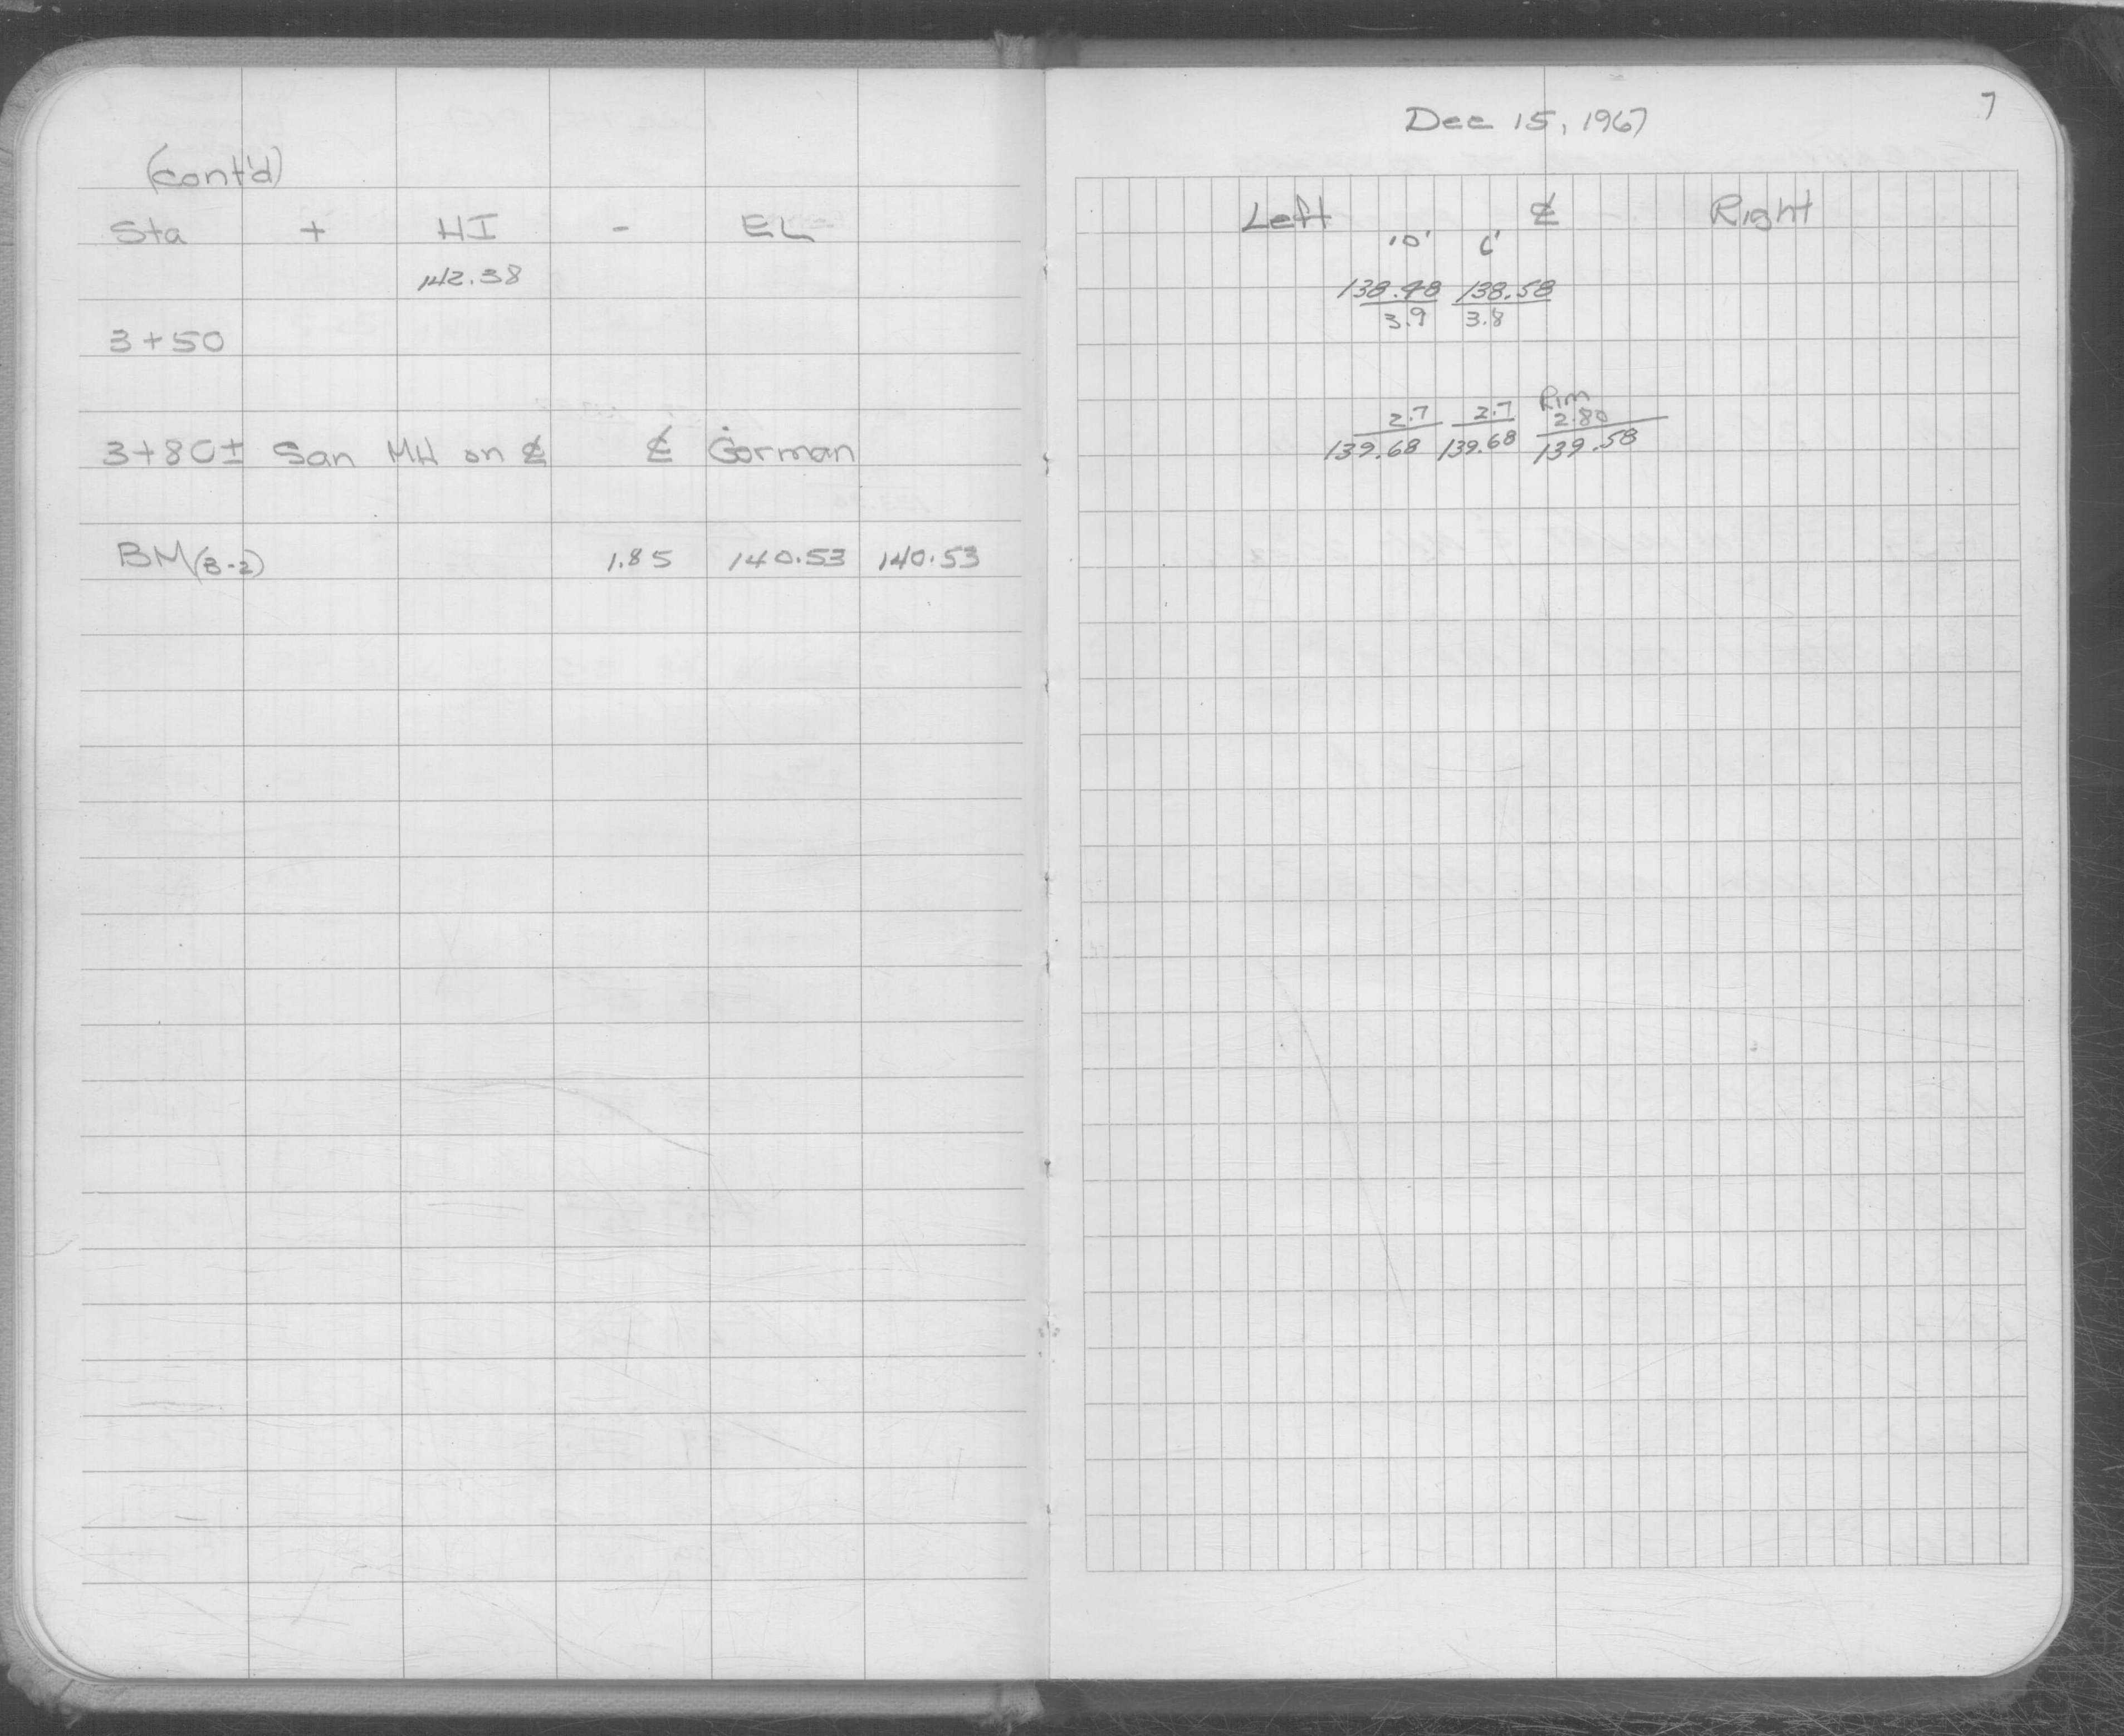 (cont'd)
Sta + HI - EL
142.38
3+50
3+80± San MH on ℄ ℄ Gorman
BM(B-2) 1.85 140.53 140.53
Dec 15, 1967 7
Left ℄ Right
10' 6'
138.48 138.58
3.9 3.8
Rim
2.7 2.7 2.80
139.68 139.68 139.58